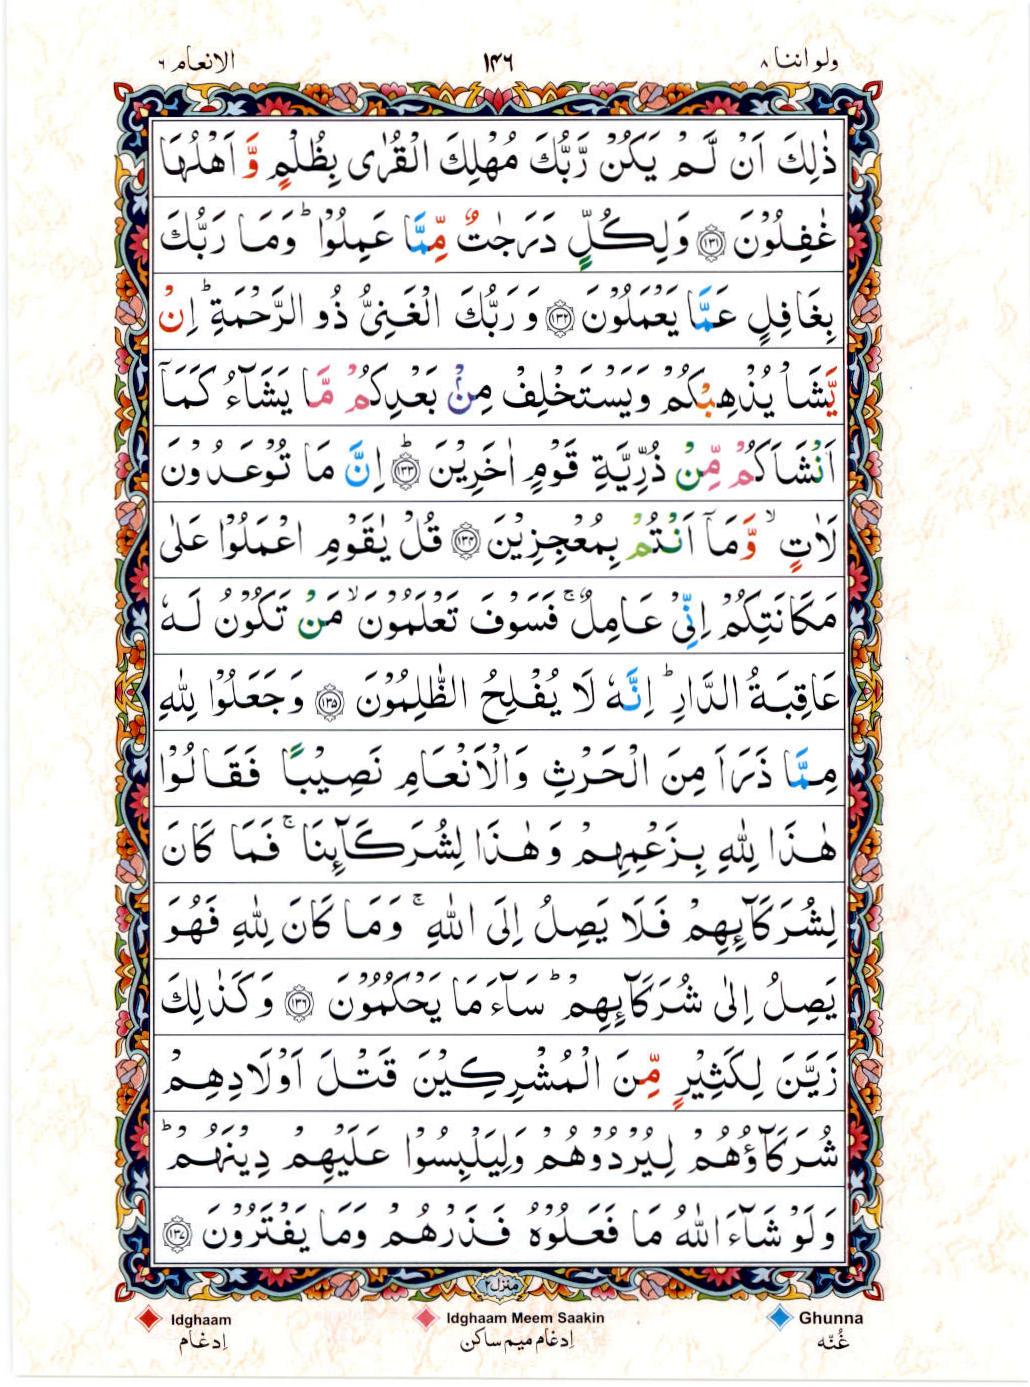 ولو اننا ٨ ١٤٦ الانعام ٦
ذٰلِكَ اَنْ لَّمْ يَكُنْ رَّبُّكَ مُهْلِكَ الْقُرٰى بِظُلْمٍ وَّ اَهْلُهَا
غٰفِلُوْنَ ۝١٣١ وَلِكُلٍّ دَرَجٰتٌ مِّمَّا عَمِلُوْا ؕ وَمَا رَبُّكَ
بِغَافِلٍ عَمَّا يَعْمَلُوْنَ ۝١٣٢ وَ رَبُّكَ الْغَنِىُّ ذُو الرَّحْمَةِ ؕ اِنْ
يَّشَاْ يُذْهِبْكُمْ وَيَسْتَخْلِفْ مِنْۢ بَعْدِكُمْ مَّا يَشَآءُ كَمَاۤ
اَنْشَاَكُمْ مِّنْ ذُرِّيَّةِ قَوْمٍ اٰخَرِيْنَ ؕ۝١٣٣ اِنَّ مَا تُوْعَدُوْنَ
لَاٰتٍ ۙ وَّمَاۤ اَنْتُمْ بِمُعْجِزِيْنَ ۝١٣٤ قُلْ يٰقَوْمِ اعْمَلُوْا عَلٰى
مَكَانَتِكُمْ اِنِّىْ عَامِلٌ ۚ فَسَوْفَ تَعْلَمُوْنَ ۙ مَنْ تَكُوْنُ لَهٗ
عَاقِبَةُ الدَّارِ ؕ اِنَّهٗ لَا يُفْلِحُ الظّٰلِمُوْنَ ۝١٣٥ وَجَعَلُوْا لِلّٰهِ
مِمَّا ذَرَاَ مِنَ الْحَرْثِ وَالْاَنْعَامِ نَصِيْبًا فَقَالُوْا
هٰذَا لِلّٰهِ بِزَعْمِهِمْ وَهٰذَا لِشُرَكَآئِنَا ۚ فَمَا كَانَ
لِشُرَكَآئِهِمْ فَلَا يَصِلُ اِلَى اللّٰهِ ۚ وَمَا كَانَ لِلّٰهِ فَهُوَ
يَصِلُ اِلٰى شُرَكَآئِهِمْ ؕ سَآءَ مَا يَحْكُمُوْنَ ۝١٣٦ وَكَذٰلِكَ
زَيَّنَ لِكَثِيْرٍ مِّنَ الْمُشْرِكِيْنَ قَتْلَ اَوْلَادِهِمْ
شُرَكَآؤُهُمْ لِيُرْدُوْهُمْ وَلِيَلْبِسُوْا عَلَيْهِمْ دِيْنَهُمْ ؕ
وَلَوْ شَآءَ اللّٰهُ مَا فَعَلُوْهُ فَذَرْهُمْ وَمَا يَفْتَرُوْنَ ۝١٣٧
منزل ٢
Idghaam Idghaam Meem Saakin Ghunna
اِدغام اِدغام میم ساکن غُنّه